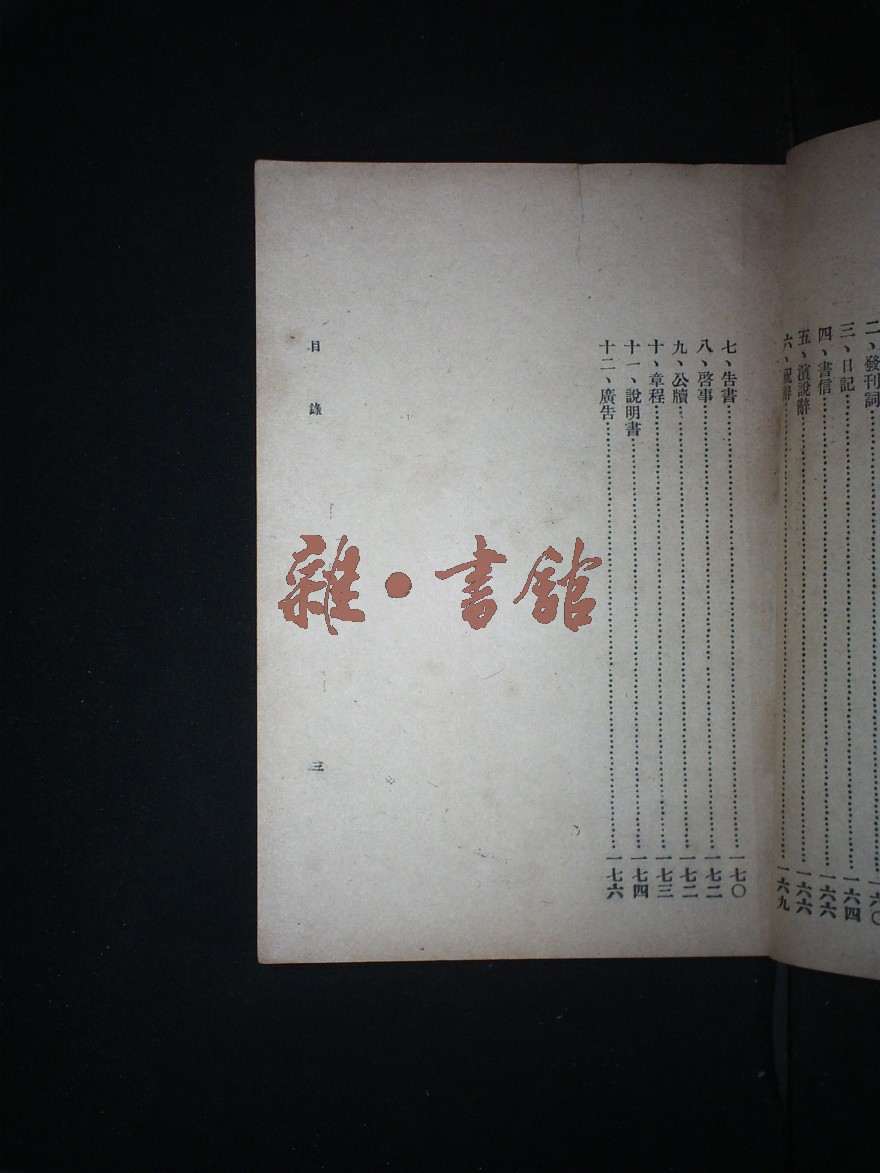 二、發刊詞……一六〇
三、日記……一六四
四、書信……一六六
五、演說辭……一六六
六、祝辭……一六九
七、告書……一七〇
八、啓事……一七二
九、公牘……一七二
十、章程……一七三
十一、說明書……一七四
十二、廣告……一七六
目錄
三
雜·書館